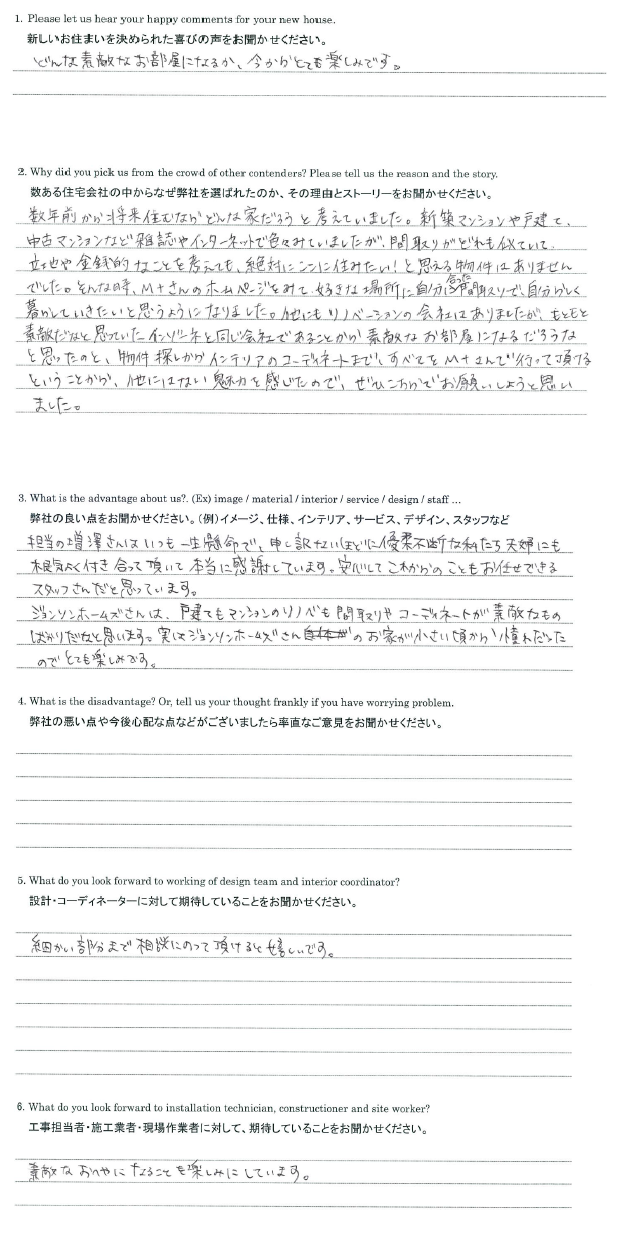 1. Please let us hear your happy comments for your new house.
新しいお住まいを決められた喜びの声をお聞かせください。
どんな素敵なお部屋になるか、今からとても楽しみです。
2. Why did you pick us from the crowd of other contenders? Please tell us the reason and the story.
数ある住宅会社の中からなぜ弊社を選ばれたのか、その理由とストーリーをお聞かせください。
数年前から将来住むならどんな家だろうと考えていました。新築マンションや戸建て、
中古マンションなど雑誌やインターネットで色々みていましたが、間取りがどれも似ていて、
立地や金銭的なことを考えても、絶対にここに住みたい!と思える物件はありません
でした。そんな時、M+さんのホームページをみて、好きな場所に自分に合った間取りで、自分らしく
暮らしていきたいと思うようになりました。他にもリノベーションの会社はありましたが、もともと
素敵だなと思っていたインゾーネと同じ会社であることから素敵なお部屋になるだろうな
と思ったのと、物件探しからインテリアのコーディネートまで、すべてをM+さんで行って頂ける
ということから、他にはない魅力を感じたので、ぜひこちらでお願いしようと思い
ました。
3. What is the advantage about us?. (Ex) image / material / interior / service / design / staff ...
弊社の良い点をお聞かせください。(例)イメージ、仕様、インテリア、サービス、デザイン、スタッフなど
担当の増澤さんはいつも一生懸命で、申し訳ないほどに優柔不断な私たち夫婦にも
根気強く付き合って頂いて本当に感謝しています。安心してこれからのこともお任せできる
スタッフさんだと思っています。
ジョンソンホームズさんは、戸建てもマンションのリノベも間取りやコーディネートが素敵なもの
ばかりだなと思います。実はジョンソンホームズさん自体がのお家が小さい頃から憧れだった
のでとても楽しみです。
4. What is the disadvantage? Or, tell us your thought frankly if you have worrying problem.
弊社の悪い点や今後心配な点などがございましたら率直なご意見をお聞かせください。
5. What do you look forward to working of design team and interior coordinator?
設計・コーディネーターに対して期待していることをお聞かせください。
細かい部分まで相談にのって頂けると嬉しいです。
6. What do you look forward to installation technician, constructioner and site worker?
工事担当者・施工業者・現場作業者に対して、期待していることをお聞かせください。
素敵なおへやになることを楽しみにしています。